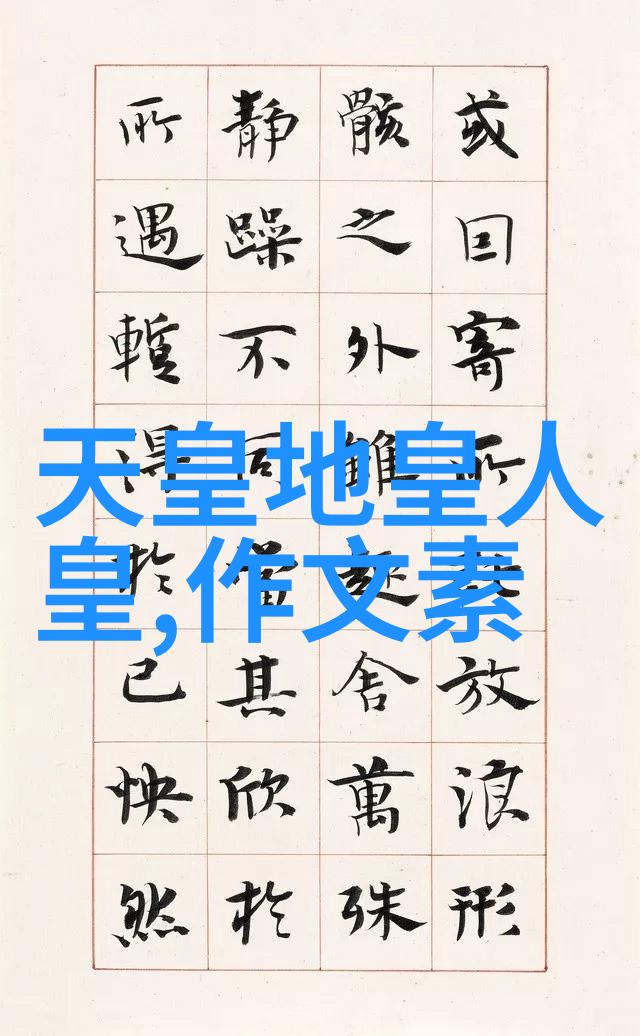 天皇地皇人
皇,作文素
或囙寄所放浪形
骸之外雖趣舍萬殊
靜躁不同當其欣於
所遇暫得於己怏然